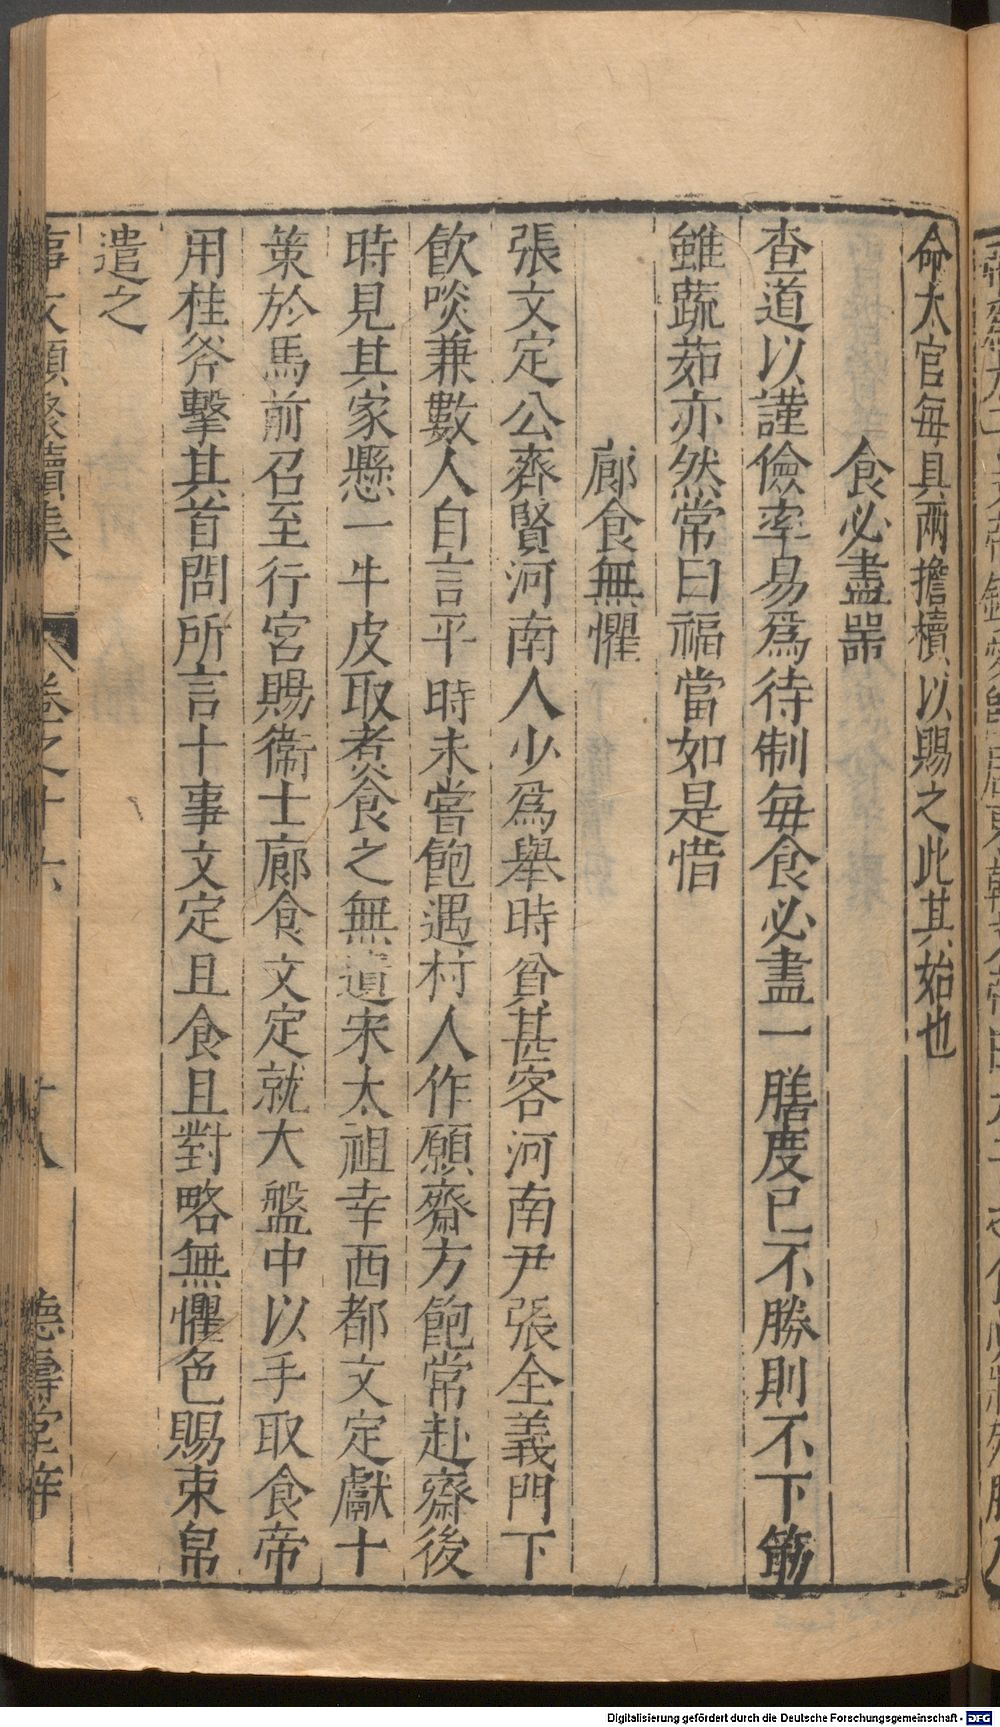 命太官每具兩擔櫝以賜之此其始也
食必盡噐
查道以謹儉率易爲待制每食必盡一膳度已不勝則不下筯
雖蔬茹亦然常曰福當如是惜
廊食無懼
張文定公齊賢河南人少爲舉時貧甚客河南尹張全義門下
飲啖兼數人自言平時未嘗飽遇村人作願齋方飽常赴齋後
時見其家懸一牛皮取煮食之無遺宋太祖幸西都文定獻十
策於馬前召至行宮賜衞士廊食文定就大盤中以手取食帝
用柱斧擊其首問所言十事文定且食且對略無懼色賜束帛
遣之
事文類聚續集 卷之十六 十八 德壽堂梓
Digitalisierung gefördert durch die Deutsche Forschungsgemeinschaft - DFG